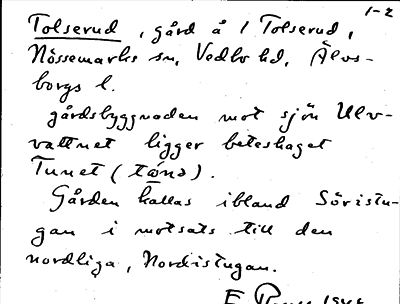 1-2
Tolserud, gård å 1 Tolserud,
Nössemarks sn, Vedbo hd, Älvs-
borgs l.
gårdsbyggnaden mot sjön Ulv-
vattnet ligger beteshaget
Tunet (
Gården kallas ibland Söristu-
gan i motsats till den
nordliga, Nordistugan.
E